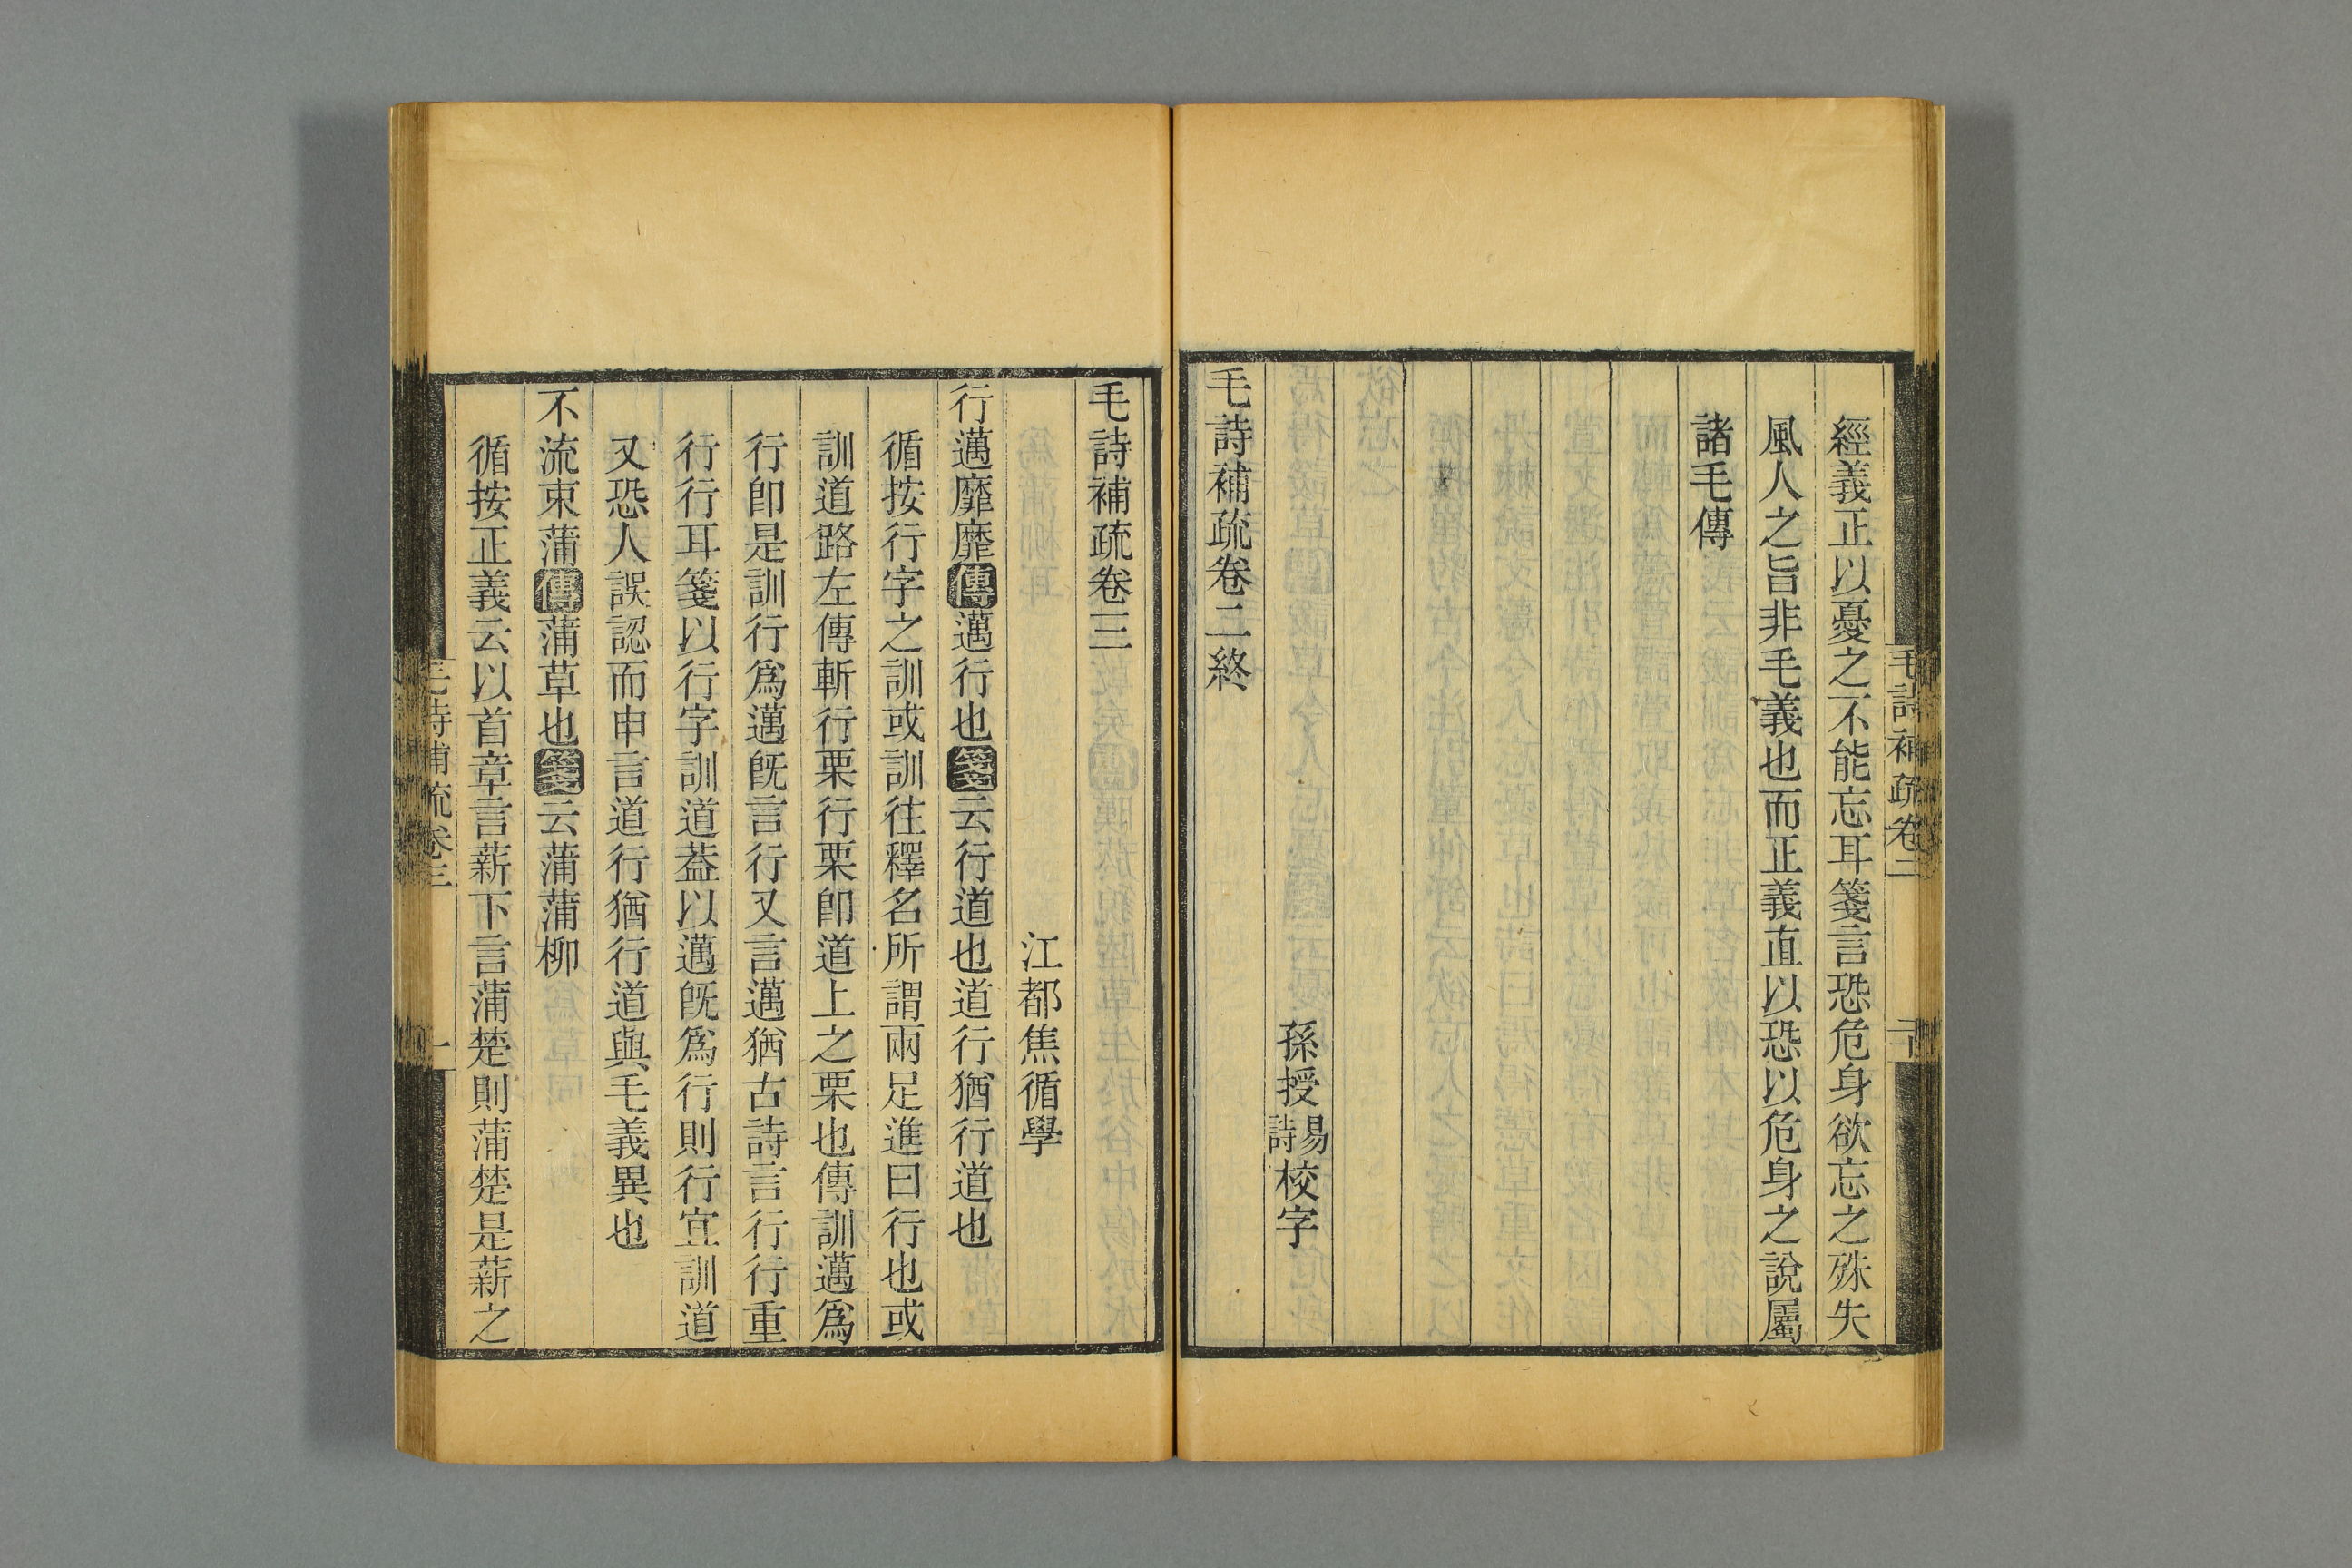 經義正以憂之不能忘耳箋言恐危身欲忘之殊失
風人之旨非毛義也而正義直以恐以危身之說屬
諸毛傳
孫授易詩校字
毛詩補疏卷二終
毛詩補疏卷二
毛詩補疏卷三
江都焦循學
行邁靡靡傳邁行也箋云行道也道行猶行道也
循按行字之訓或訓往釋名所謂兩足進曰行也或
訓道路左傳斬行栗行栗卽道上之栗也傳訓邁爲
行卽是訓行爲邁旣言行又言邁猶古詩言行行重
行行耳箋以行字訓道葢以邁旣爲行則行宜訓道
又恐人誤認而申言道行猶行道與毛義異也
不流束蒲傳蒲草也箋云蒲蒲柳
循按正義云以首章言薪下言蒲楚則蒲楚是薪之
毛詩補疏卷三
一